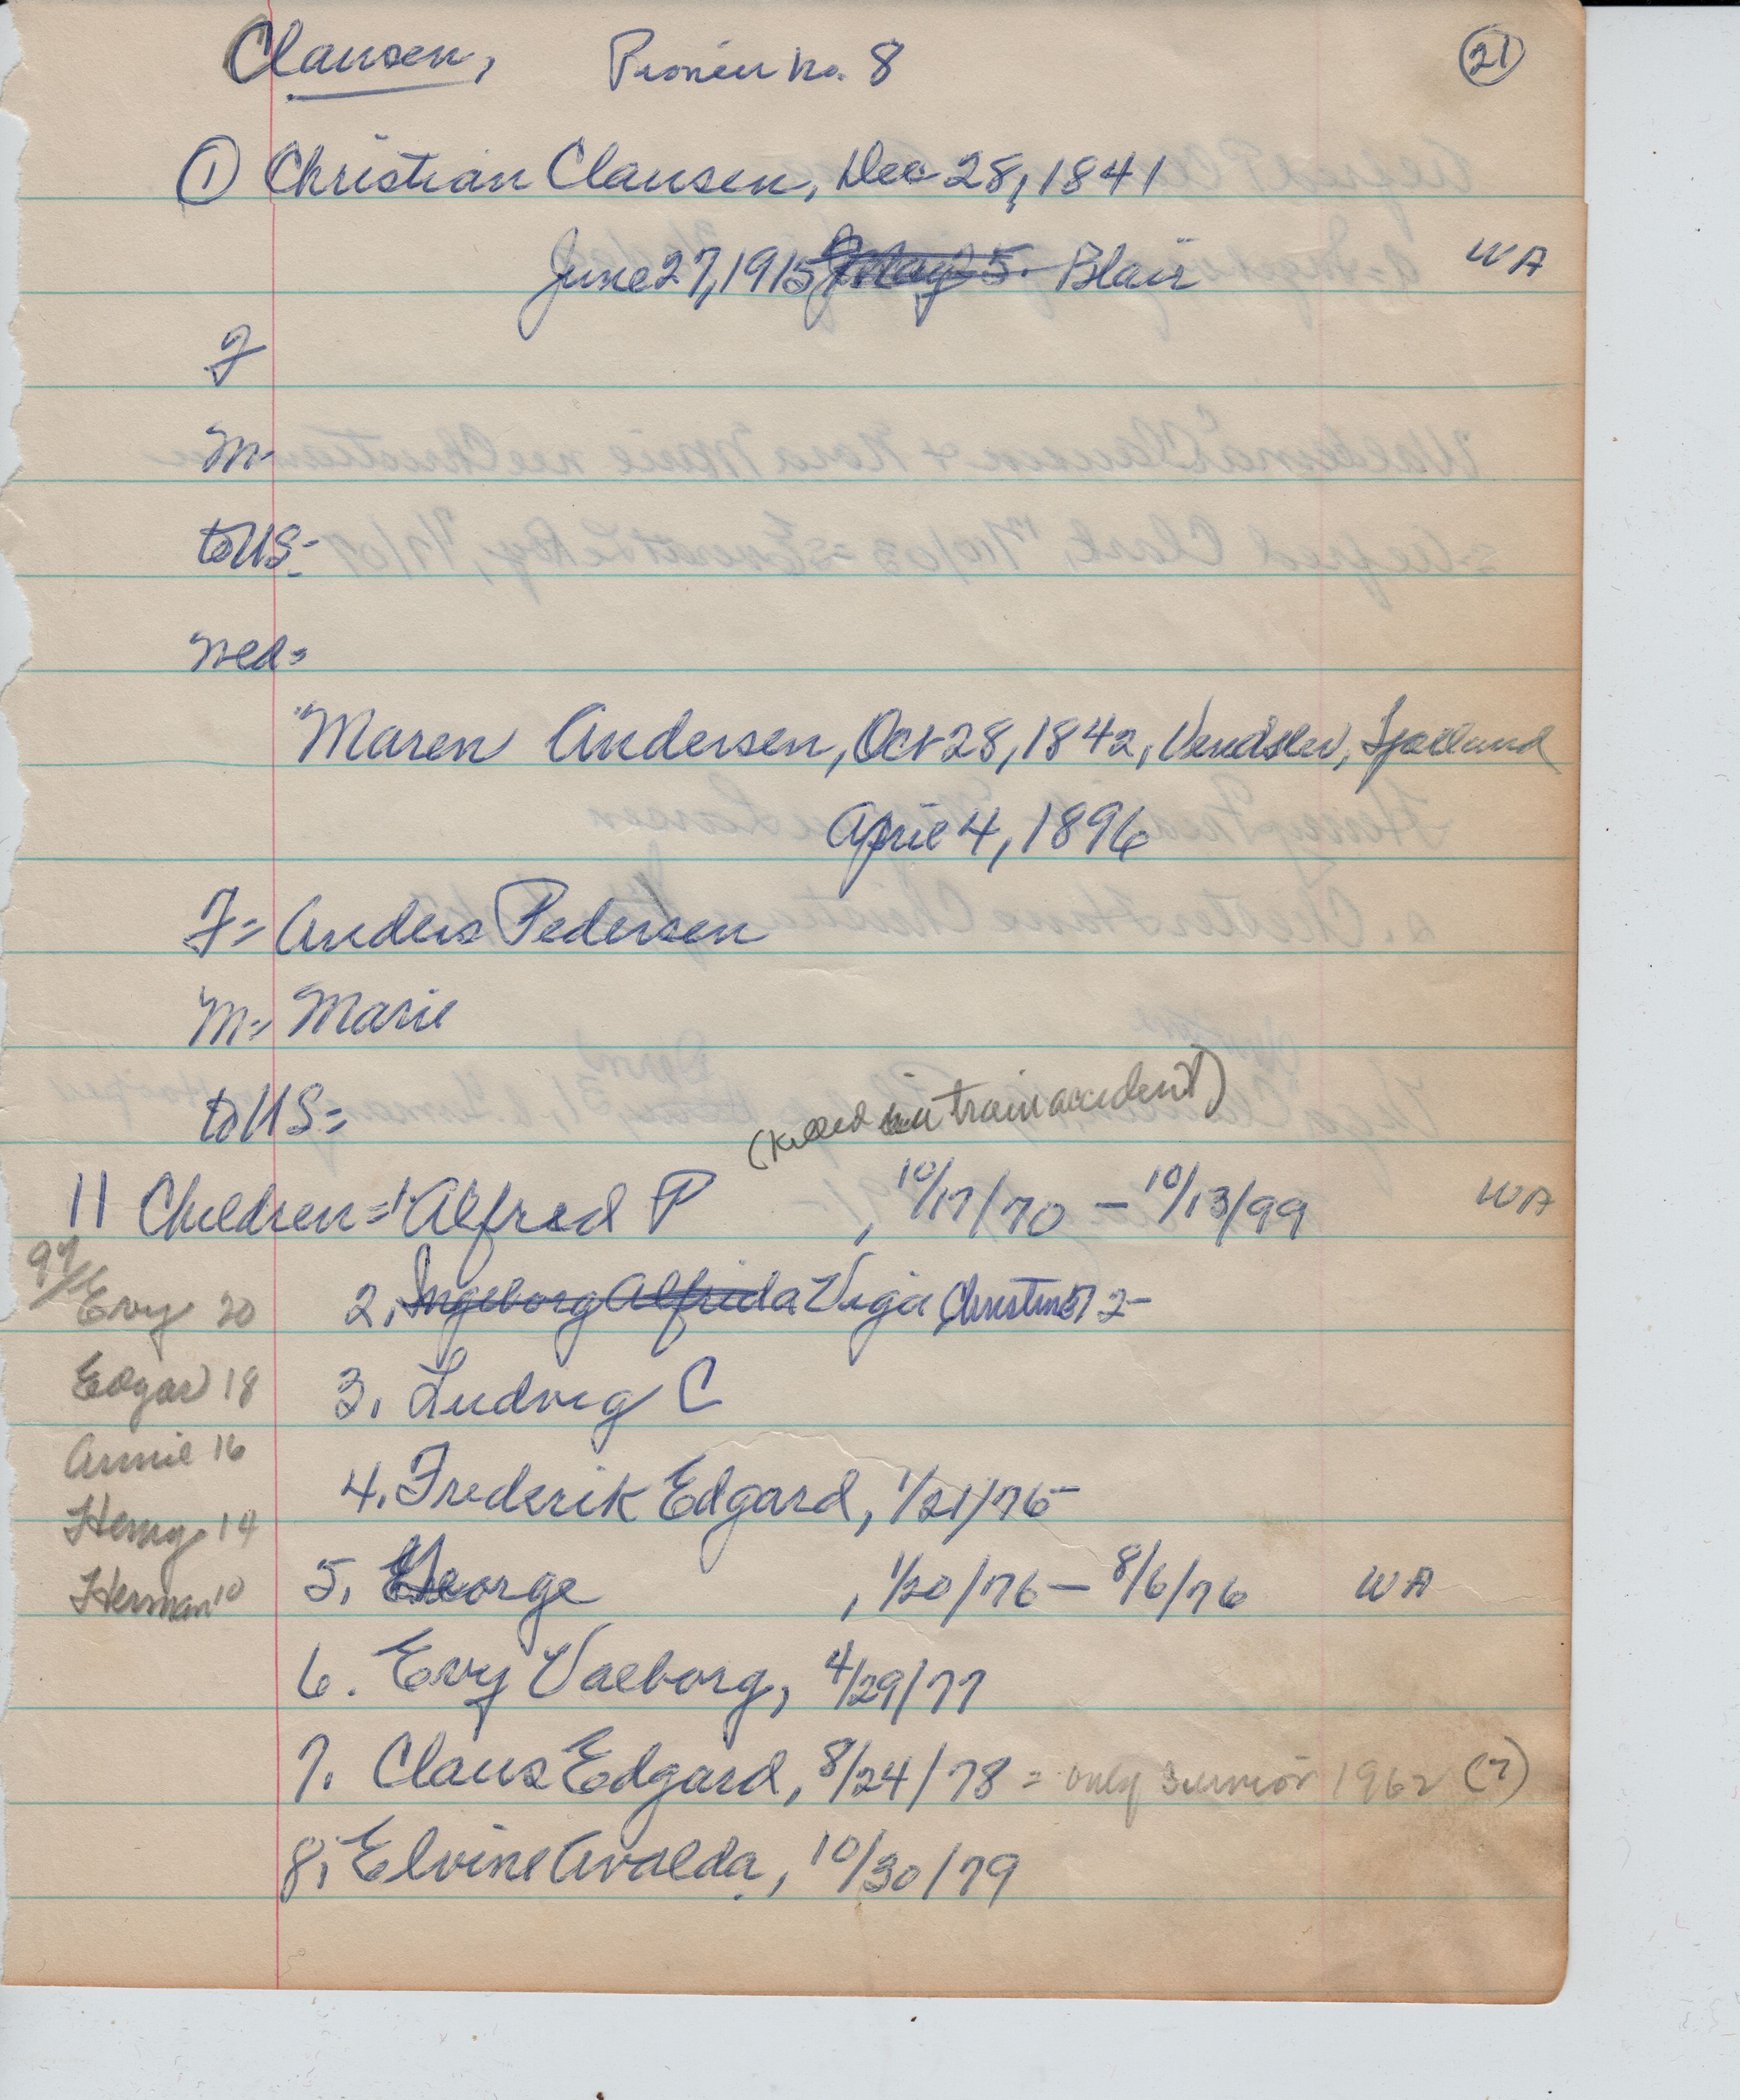 Clausen, Pioneer no. 8 21
1 Christian Clausen, Dec 28, 1841
June 27, 1915 May 25. Blair WA
F
M-
to US-
Wed=
Maren Andersen, Oct 28, 1842, Vendslev, Sjælland
April 4, 1896
F= Anders Pedersen
M= Marie
to US=
(killed in train accident)
11 Children= 1. Alfred P , 10/17/70 - 10/13/99 WA
97/
Evy 20 2. Ingeborg Alfrida Vega Christine 72-
Edgar 18 3. Ludvig C
Annie 16
4. Frederik Edgard, 1/21/75-
Henry 14
Herman 10 5. George , 1/20/76 - 8/6/76 WA
6. Evy Valborg, 4/29/77
7. Claus Edgard, 8/24/78 = only survivor 1962 (?)
8. Elvine Avalda, 10/30/79